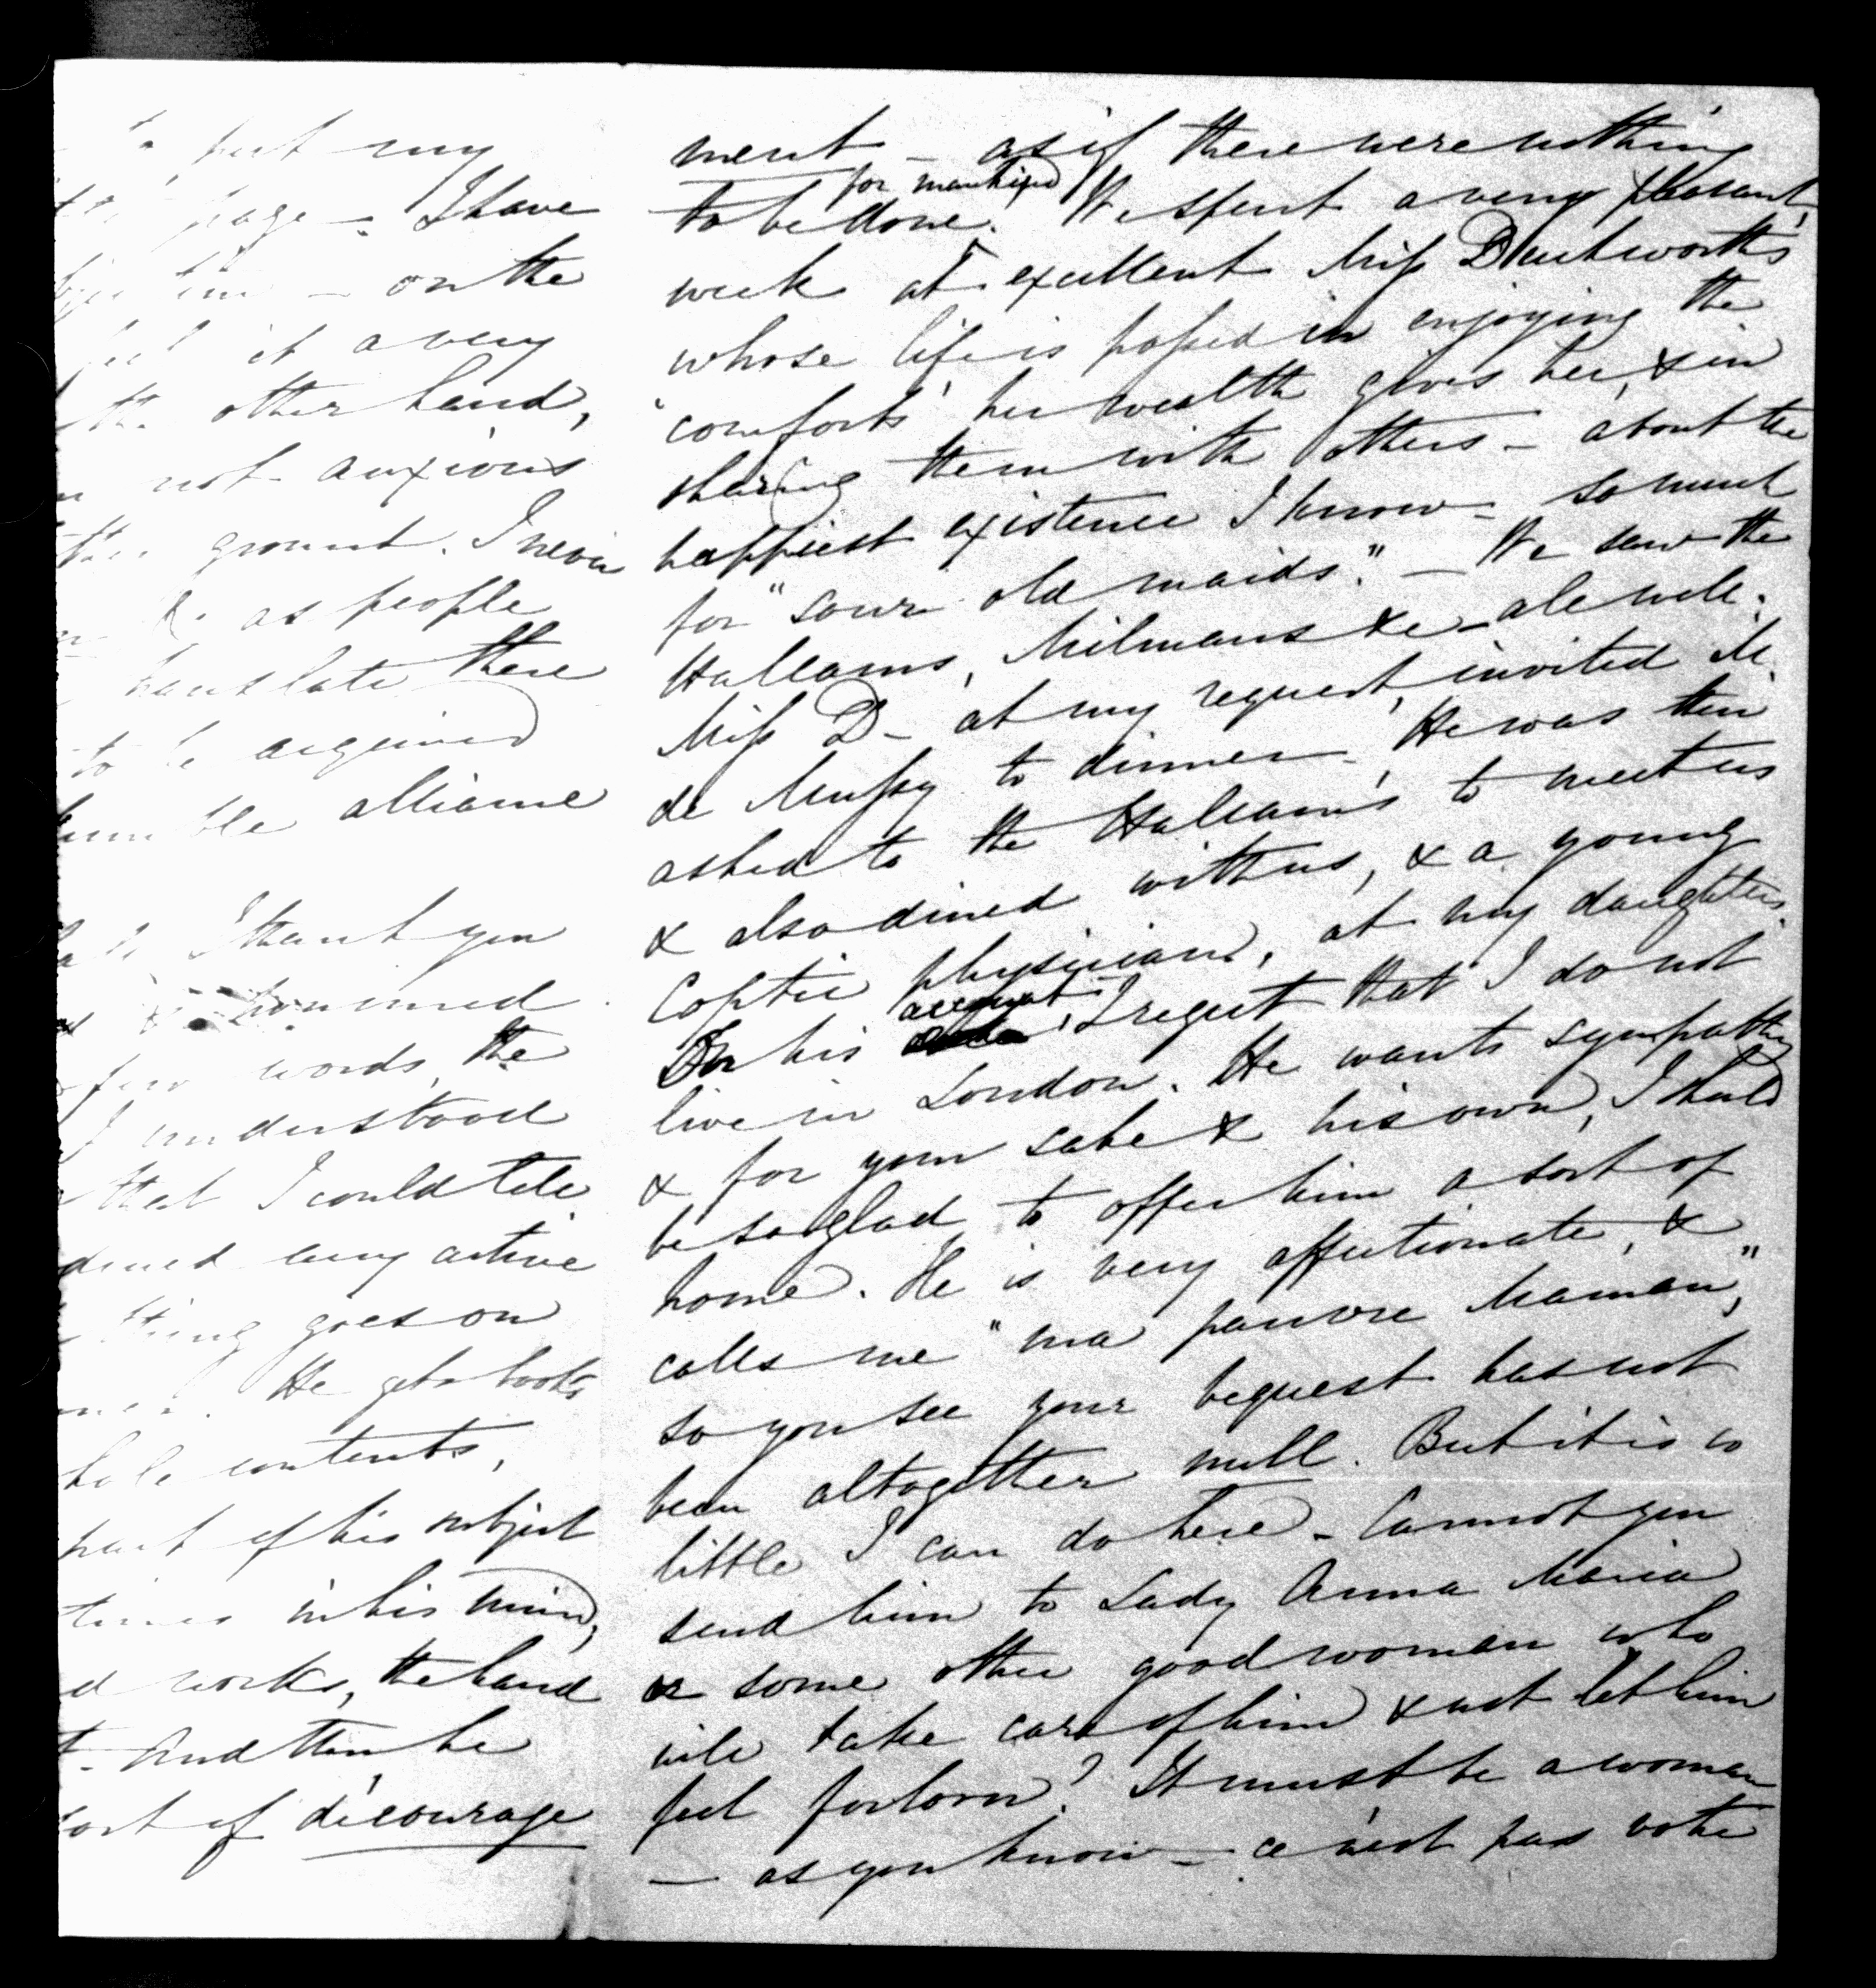 put my
page - I have
- on the
it a very
the other hand,
not anxious
ground. I never
as people
translate there
to be acquired
humble alliance
I thank you
few words, the
I understood
that I could tell
very active
thing goes on
He gets books
whole contents,
part of his subject
times in his mind,
works, the hand
And then he
sort of décourage
ment - as if there were nothing
to be done for mankind. We spent a very pleasant
week at excellent Miss Duckworth's
whose life is passed in enjoying the
"comforts" her wealth gives her, & in
sharing them with others - about the
happiest existence I know - so much
for "sour old maids." - We saw the
Hallams, Milmans &c - all well.
Miss D - at my request, invited M.
de Mussy to dinner - He was then
asked to the Hallams' to meet us
& also dined with us, & a young
Coptic physician, at my daughter's.
On his account, I regret that I do not
live in London. He wants sympathy
& for your sake & his own, I should
be so glad to offer him a sort of
home. He is very affectionate, &
calls me "ma pauvre Maman,"
so you see your bequest has not
been altogether null. But it is so
little I can do here - Cannot you
send him to Lady Anna Maria
or some other good woman who
will take care of him & not let him
feel forlorn? It must be a woman
- as you know - ce n'est pas votre